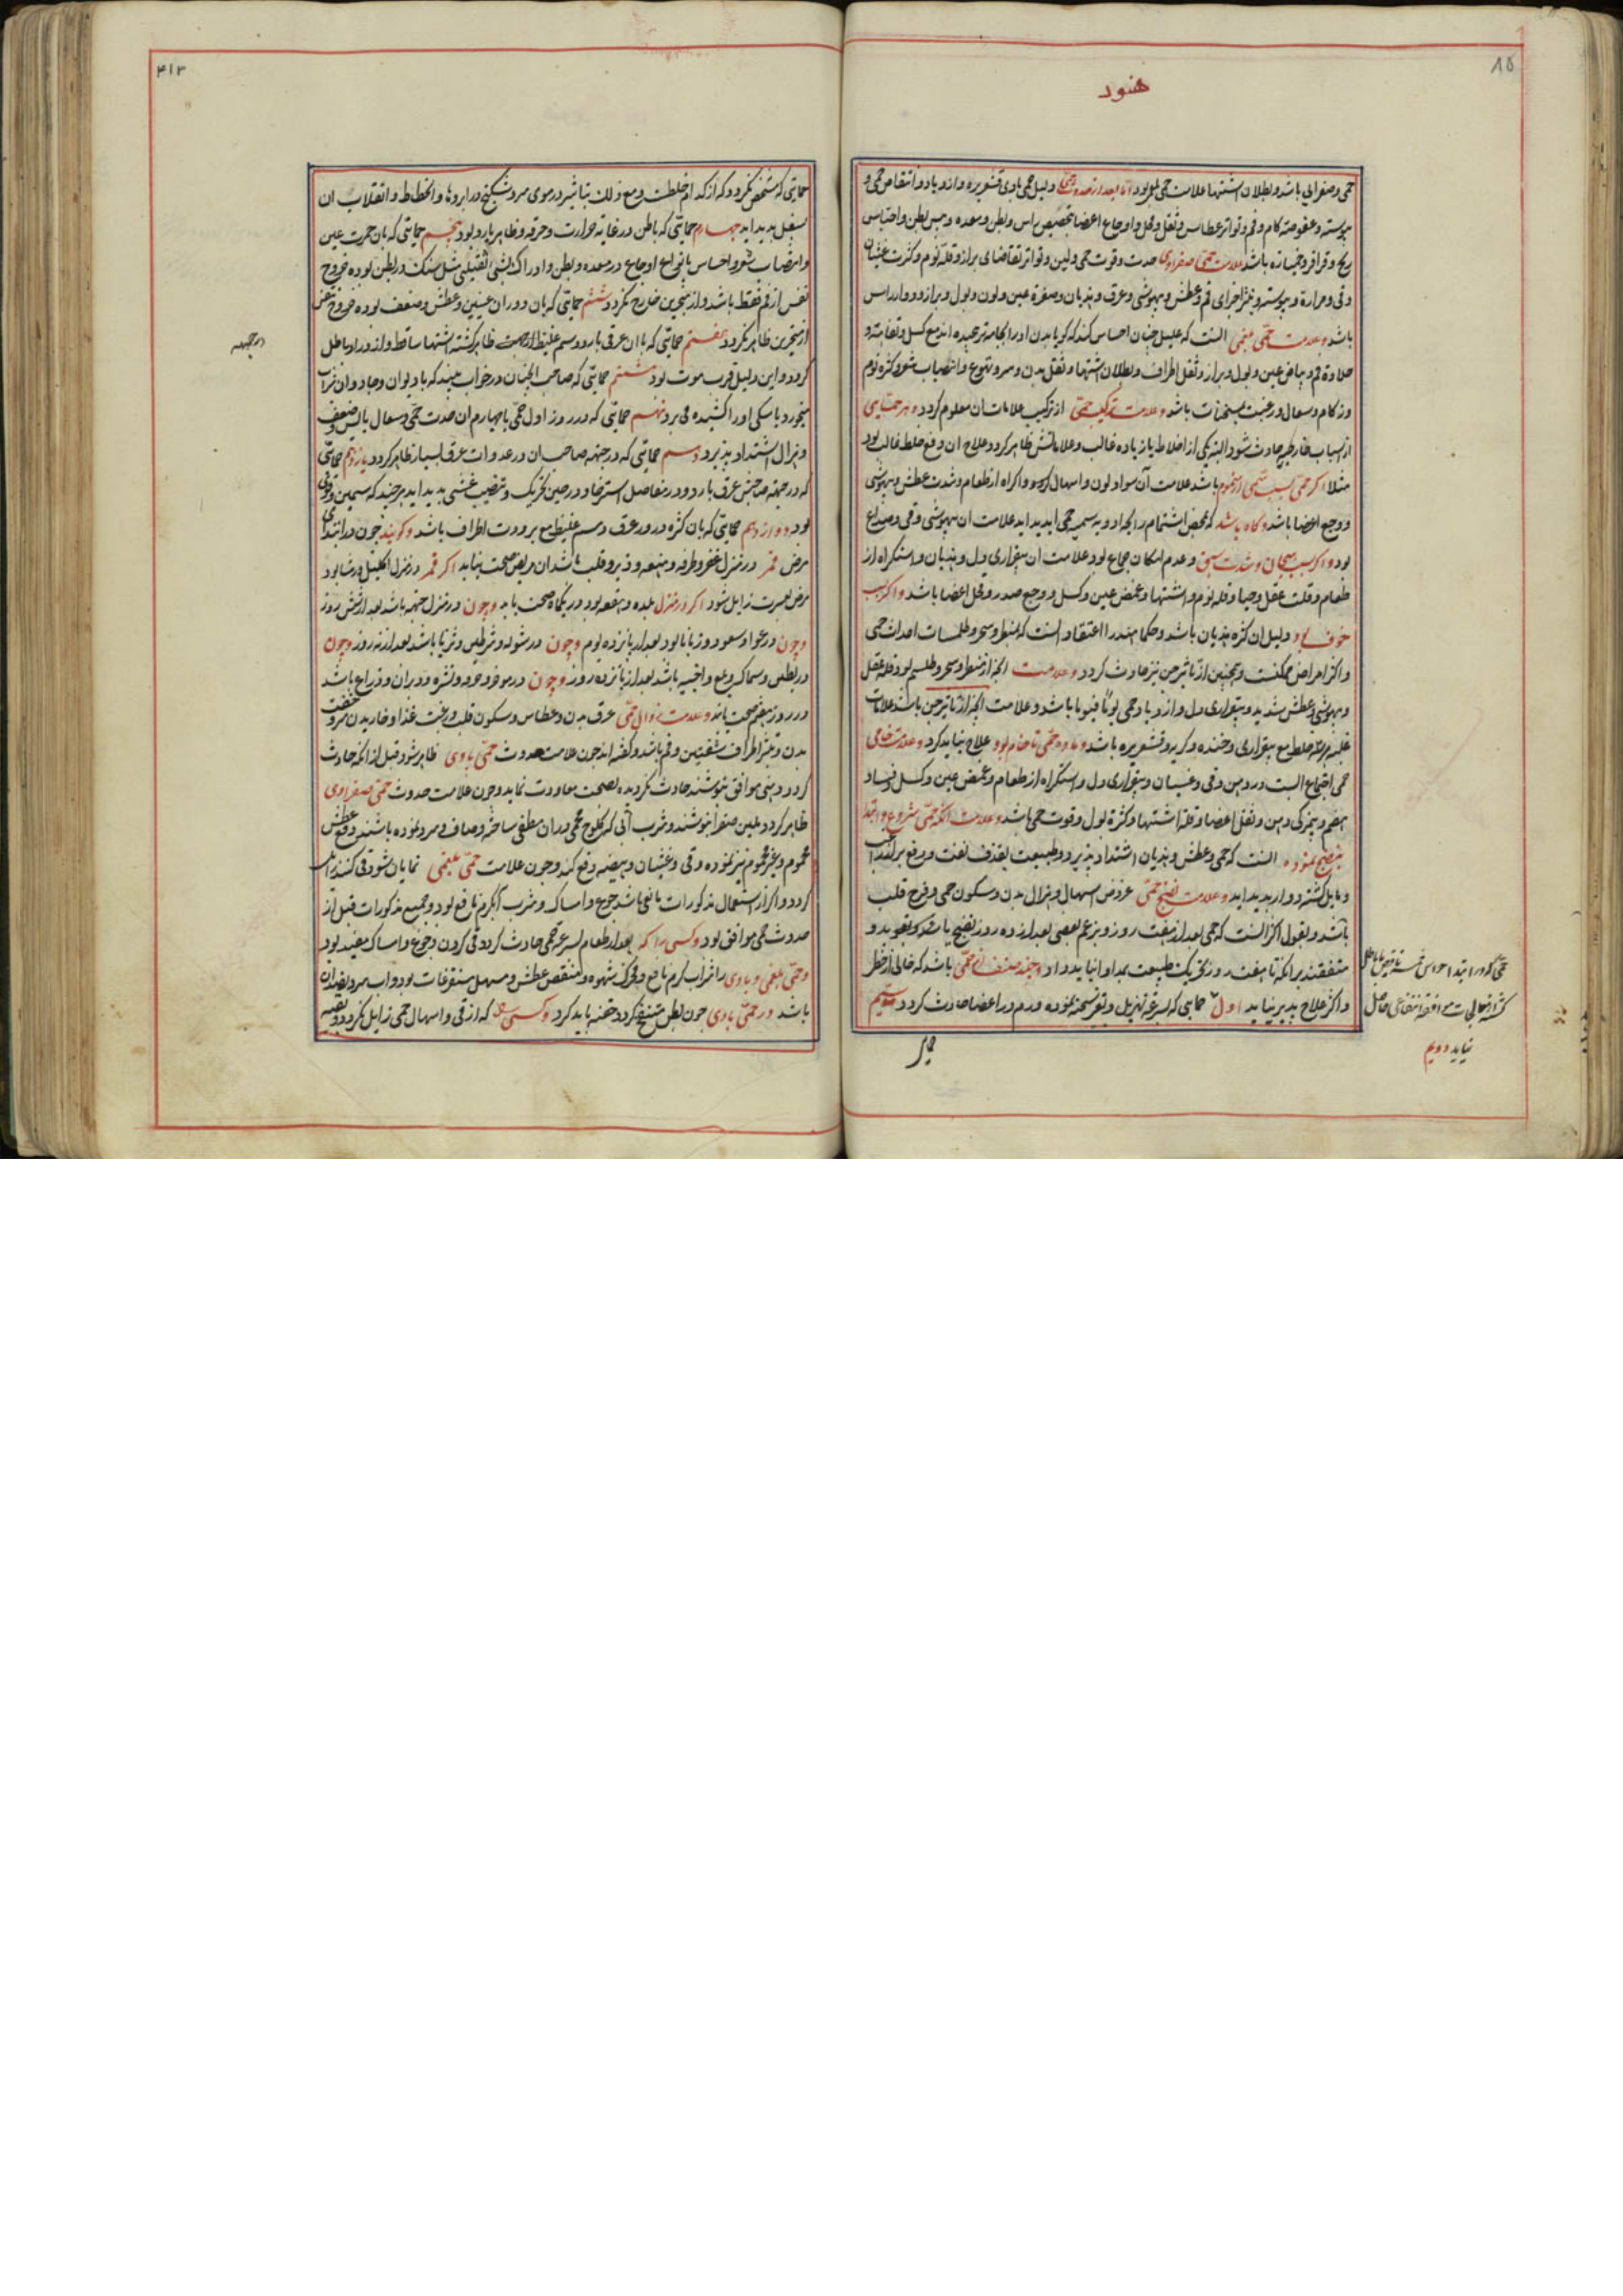 هنود
حمی و صفرابی باشد و بطلان اشتها علامت حمی بلغمی بود اما بعد از حدوث حمی دلیل حمی بادی قشعریره و ازدیاد و انتقاص حمی و
یبوسته و عفوصة کام و فم و تواتر عطاس و ثقل و اوجاع اعضا بتخصیص راس و بطن و معده و حبس بطن و احتباس
ریح و قراقر و خمیازه باشد علامت حمی صفراوی حدت و قوت حمی و لین و تواتر تقاضای براز و قلة نوم و کثرت غثیان
و قی و مرارة و یبوسته و بثر اجزای فم و عطش و بیهوشی و عرق و هذیان و صفرة عین و لون و بول و براز و دوار راس
باشد و علامت حمی بلغمی انست که علیل چنان احساس کند که کویا بدن او را بجامه تر پیچیده اند مع کسل و تفاهته و
حلاوة فم و بیاض عین و بول و براز و ثقل اطراف و بطلان اشتها و ثقل بدن و سر و تهوع و انتصاب شعر و کثره نوم
و زکام و سعال و رغبت بمسخنات باشد و علامت ترکیب حمی از ترکیب علامات ان معلوم کردد و هر حمایی
از اسباب خارجیه حادث شود البته یکی از اخلاط یا زیاده غالب و علاماتش ظاهر کردد علاج ان دفع خلط غالب بود
مثلا اکر حمی بسبب سمی از سموم باشد علامت آن سواد لون و اسهال و اکراه از طعام و شدت عطش و بیهوشی
و وجع اعضا باشد و کاه باشد که بمحض اشتمام رایحه ادویه سمیه حمی پدید اید علامت ان بیهوشی و قی و صداع
بود و اکر بسبب هیجان و شدت شبق و عدم امکان جماع بود علامت ان بیقراری دل و هذیان و استکراه از
طعام و قلت عقل و حیا و قلة نوم و اشتها و غمض عین و کسل و وجع صدر و کل اعضا باشد و اکر بسبب
خوف بود دلیل ان کثره هذیان باشد و حکما هند را اعتقاد انست که بمنطر و سحر و طلسمات احداث حمی
و اکثر امراض ممکنست و همچنین از تاثیر جن نیز حادث کردد و علامت انچه از منطر و سحر و طلسم بود قلة عقل
و بیهوشی و عطش شدید و بیقراری دل و ازدیاد حمی یوما فیوما باشد و علامت انچه از تاثیر جن باشد علامات
غلبه هر سه خلط مع بیقراری و خنده و کریه و قشعریره باشد و ماده حمی تا خام بود علاج نباید کرد و علامت خامی
حمی اجتماع الب در دهن و قی و غثیان و بیقراری دل و استکراه از طعام و غمض عین و کسل و فساد
هضم و بیمزکی دهن و ثقل اعضا و قلة اشتها و کثرة بول و قوت حمی باشد و علامت انکه حمی شروع و ابتدا
بنضج نموده انست که حمی و عطش و هذیان اشتداد پذیرد و طبیعت بقذف نفث و دفع براز
و مایل کشته دوار پدید اید و علامت نضج حمی عروض اسهال و هزال بدن و سکون حمی و فرح قلب
باشد و بقول اکثر انست که حمی بعد از هفت روز و بزعم بعضی بعد از ده روز نضج یابد و
متفقند برانکه تا هفت روز تحریک طبیعت بمداوا نباید داد و چند صنف از حمی باشد که خالی از خطر
و اکثر علاج پذیر نیاید اول حمایی که بسرعة تهزیل و تغیر سحنه نموده ورم در اعضا حادث کردد سیم
حمی که در ابتدا حواس خمسه ناقص یا باطل
کشته از معالجات موافقه انتفاعی حاصل
نیاید دویم
۴۱۳
حمایتی که مشخص نکردد که از کدام خلطست و مع ذلک تباشیر در موی سر و شکنج در ابروها و انحطاط و انقلاب ان
بسفل پدید اید چهارم حمایتی که باطن در غایة حرارت و حرقه و ظاهر بارد بود پنجم حمایتی که بان حمرت عین
و انتصاب شعر و احساس بانواع اوجاع در معده و بطن و ادراک شی ثقیلی مثل سنک در بطن بوده خروج
نفس از فم فقط باشد و از منخرین خارج نکردد ششم حمایتی که بان دوران عینین و عطش و ضعف بوده خروج نفس
از منخرین ظاهر نکردد هفتم حمایتی که با ان عرقی بارد و دسم غلیظ ظاهر کشته اشتها ساقط و ازدراد باطل
کردد و این دلیل قرب موت بود هشتم حمایتی که صاحب انچنان در خواب بیند که با دیوان و جادوان شراب
میخورد یا سکی او را کشیده می برد نهم حمایتی که در روز اول حمی یا چهارم ان حدت حمی و سعال یابس و ضعف
و هزال اشتداد پذیرد دهم حمایتی که در جبهه صاحب ان در غدوات عرق بسیار ظاهر کردد یازدهم حمایتی
که در جبهه صاحبش عرق بارد و در مفاصل استرخا و در حین تحریک و تنصیب غشی پدید اید هرچند که سمین و قوی
بود دوازدهم حمایتی که بان کثره درور عرق دسم غلیظ مع برودت اطراف باشد و کویند چون در ابتدای
مرض قمر در منزل غفر و طرفه و هنعه و دبر و قلب باشد ان مریض صحت نیابد اکر قمر در منزل اکلیل و رشا بود
مرض بعسرت زایل شود اکر در منزل بلده و هقعه بود در یکماه صحت یابد و چون در منزل جبهه باشد بعد از شش روز
و چون در عوا و سعود و زبانا بود بعد از پانزده یوم و چون در شوله و شرطین و ثریا باشد بعد از نه روز و چون
در بطین و سماک و بلع و اخبیه باشد بعد از پانزده روز و چون در موخر و نثره و دبران و ذراع باشد
در روز هفتم صحت یابد و علامت زوال حمی عرق بدن و عطاس و سکون قلب و رغبت غذا و خاریدن سر و خفت
بدن و بثر اطراف شفتین و فم باشد و کفته اند چون علامت حدوث حمی بادی ظاهر شود قبل از انکه حادث
کردد دهنی موافق بنوشند حادث نکردیده بصحت معاودت نماید و چون علامت حدوث حمی صفراوی
ظاهر کردد ملین صفرا بنوشند و شرب آبی که کلوخ محمی دران مطفی ساخته و صاف و سرد نموده باشند دفع عطش
محموم و غیر محموم نیز نموده و قی و غثیان و هیضه دفع کند و چون علامت حمی بلغمی نمایان شود قی کنند
کردد و اکر از استعمال مذکورات مانعی باشد جوع و امساک و شرب آبکرم نافع بود و جمیع مذکورات قبل از
حدوث حمی موافق بود و کسی را که بعد از طعام بسرعة حمی حادث کردد قی کردن و جوع و امساک مفید بود
و حمی بلغمی و بادی را شراب کرم نافع و محرک شهوه و منقص عطش و مسهل مستفرغات بود و اب سرد بضد ان
باشد در حمی بادی چون بطن منتفخ کردد حقنه باید کرد و کسی را که از قی و اسهال حمی زایل نکردد و بقیه
در جبهه